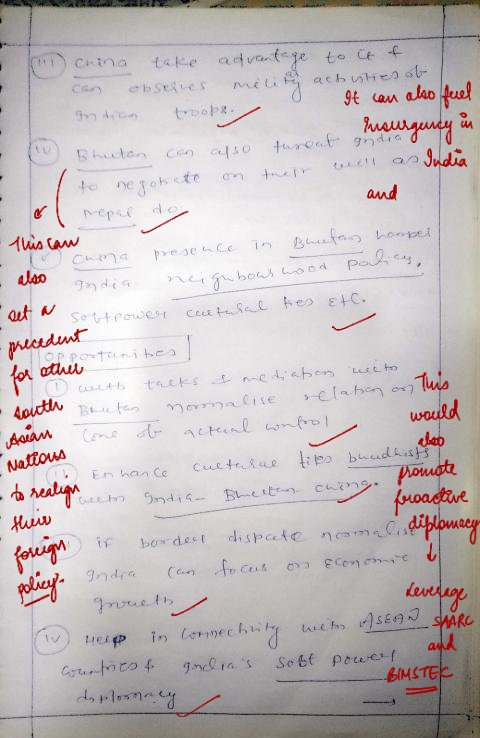 iii) China take advantage to it &
can observes military activities of
Indian troops.
It can also fuel
Insurgency in
India
and
iv) Bhutan can also threat India
to negotiate on their well as
Nepal do.
This can
also
set a
precedent
for other
South
Asian
Nations
to realign
their
foreign
policy.
v) China presence in Bhutan hamper
India neighbourhood policy,
Softpower cultural ties etc.
Opportunities
i) with talks & mediation with
Bhutan normalise relation on
line of actual control
This
would
also
promote
proactive
diplomacy
↓
Leverage
SAARC
and
BIMSTEC
ii) Enhance cultural ties buddhists
with India - Bhutan China.
if border dispute normalise
India can focus on Economic
growth
iv) Help in connectivity with ASEAN
countries & India's Soft power
diplomacy